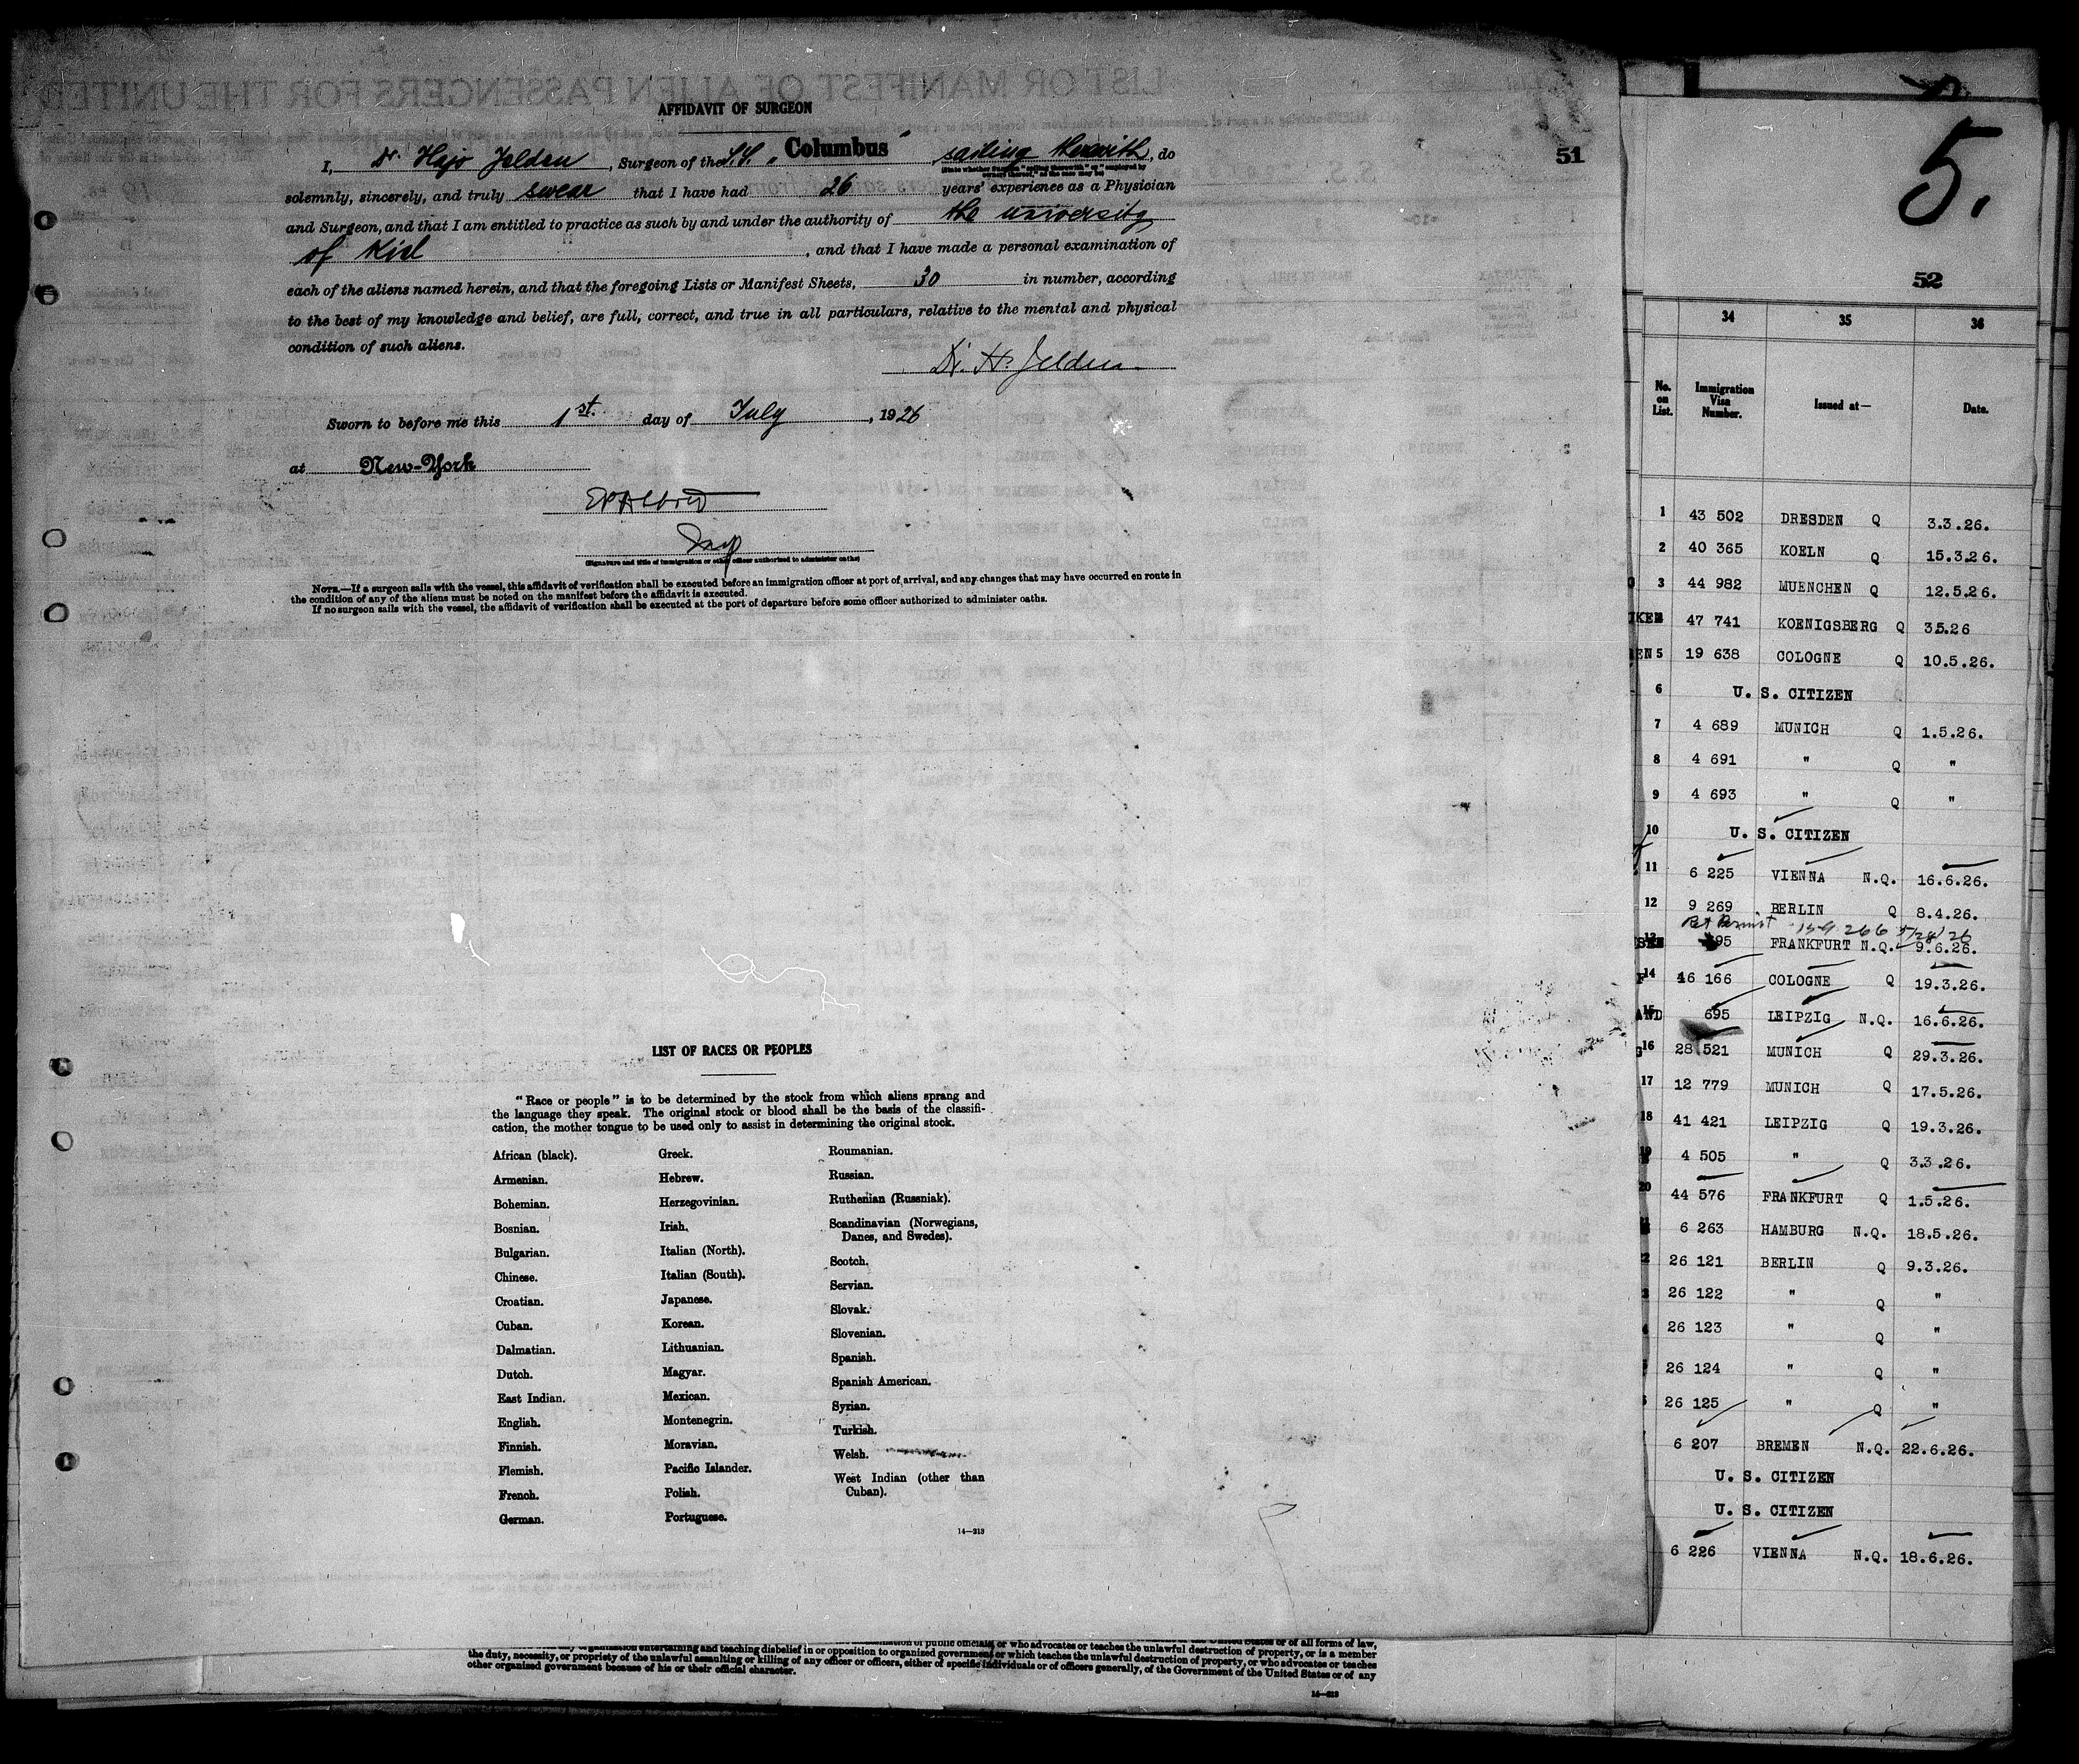 AFFIDAVIT OF SURGEON
I, Dr. Hajo Jelden, Surgeon of the S.S. „Columbus" sailing therewith, do
(State whether Surgeon "sailing therewith," or "employed by owners thereof," as the case may be)
solemnly, sincerely, and truly swear that I have had 26 years' experience as a Physician
and Surgeon, and that I am entitled to practice as such by and under the authority of the university
of Kiel, and that I have made a personal examination of
each of the aliens named herein, and that the foregoing Lists or Manifest Sheets, 30 in number, according
to the best of my knowledge and belief, are full, correct, and true in all particulars, relative to the mental and physical
condition of such aliens.
Dr. H. Jelden
Sworn to before me this 1st. day of July, 1926
at New-York
(Signature and title of immigration or other officer authorized to administer oaths)
NOTE.—If a surgeon sails with the vessel, this affidavit of verification shall be executed before an immigration officer at port of arrival, and any changes that may have occurred en route in
the condition of any of the aliens must be noted on the manifest before the affidavit is executed.
If no surgeon sails with the vessel, the affidavit of verification shall be executed at the port of departure before some officer authorized to administer oaths.
51
LIST OF RACES OR PEOPLES
"Race or people" is to be determined by the stock from which aliens sprang and
the language they speak. The original stock or blood shall be the basis of the classifi-
cation, the mother tongue to be used only to assist in determining the original stock.
African (black).
Armenian.
Bohemian.
Bosnian.
Bulgarian.
Chinese.
Croatian.
Cuban.
Dalmatian.
Dutch.
East Indian.
English.
Finnish.
Flemish.
French.
German.
Greek.
Hebrew.
Herzegovinian.
Irish.
Italian (North).
Italian (South).
Japanese.
Korean.
Lithuanian.
Magyar.
Mexican.
Montenegrin.
Moravian.
Pacific Islander.
Polish.
Portuguese.
Roumanian.
Russian.
Ruthenian (Russniak).
Scandinavian (Norwegians,
Danes, and Swedes).
Scotch.
Servian.
Slovak.
Slovenian.
Spanish.
Spanish American.
Syrian.
Turkish.
Welsh.
West Indian (other than
Cuban).
14—213
5.
52
34 35 36
No. on List. Immigration Visa Number. Issued at— Date.
1 43 502 DRESDEN Q 3.3.26.
2 40 365 KOELN Q 15.3.26.
3 44 982 MUENCHEN Q 12.5.26.
47 741 KOENIGSBERG Q 35.26
5 19 638 COLOGNE Q 10.5.26.
6 U. S. CITIZEN
7 4 689 MUNICH Q 1.5.26.
8 4 691 " Q "
9 4 693 " Q "
10 U. S. CITIZEN
11 6 225 VIENNA N.Q. 16.6.26.
12 9 269 BERLIN Q 8.4.26.
Ret Permit
13 95 FRANKFURT N.Q. 9.6.26.
14 46 166 COLOGNE Q 19.3.26.
15 695 LEIPZIG N.Q. 16.6.26.
16 28 521 MUNICH Q 29.3.26.
17 12 779 MUNICH Q 17.5.26.
18 41 421 LEIPZIG Q 19.3.26.
19 4 505 " Q 3.3.26.
20 44 576 FRANKFURT Q 1.5.26.
6 263 HAMBURG N.Q. 18.5.26.
26 121 BERLIN Q 9.3.26.
26 122 " Q "
26 123 " Q "
26 124 " Q "
26 125 " Q "
6 207 BREMEN N.Q. 22.6.26.
U. S. CITIZEN
U. S. CITIZEN
6 226 VIENNA N.Q. 18.6.26.
organization entertaining and teaching disbelief in or opposition to organized government, or who advocates or teaches
the duty, necessity, or propriety of the unlawful assaulting or killing of any officer or officers, either of specific individuals or of officers generally, of the Government of the United States or of any
other organized government because of his or their official character.